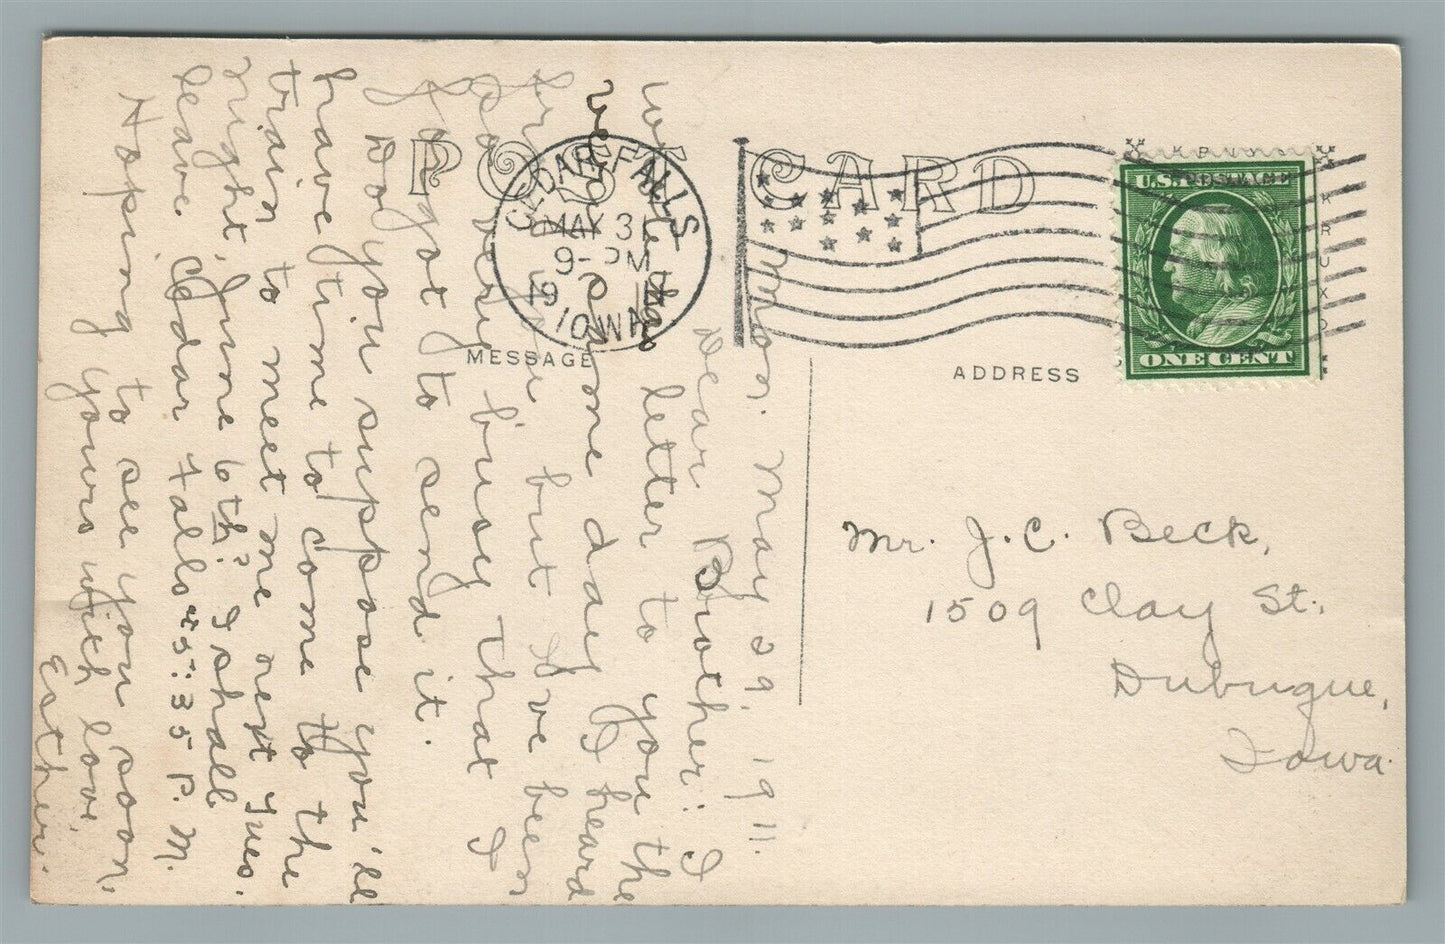 POST CARD
CEDAR FALLS
MAY 31
9-PM
19 11
IOWA
U.S. POSTAGE
ONE CENT
KRUXO
MESSAGE
ADDRESS
Mon. May 29, 1911.
Dear Brother: I
letter to you the
same day I heard
from you but I've been
so very busy that I
forgot to send it.
Do you suppose you'll
have time to come to the
train to meet me next Tues.
night, June 6th? I shall
leave Cedar Falls at 5:35 P.M.
Hoping to see you soon,
yours with love,
Esther.
Mr. J. C. Beck,
1509 Clay St.,
Dubuque,
Iowa.